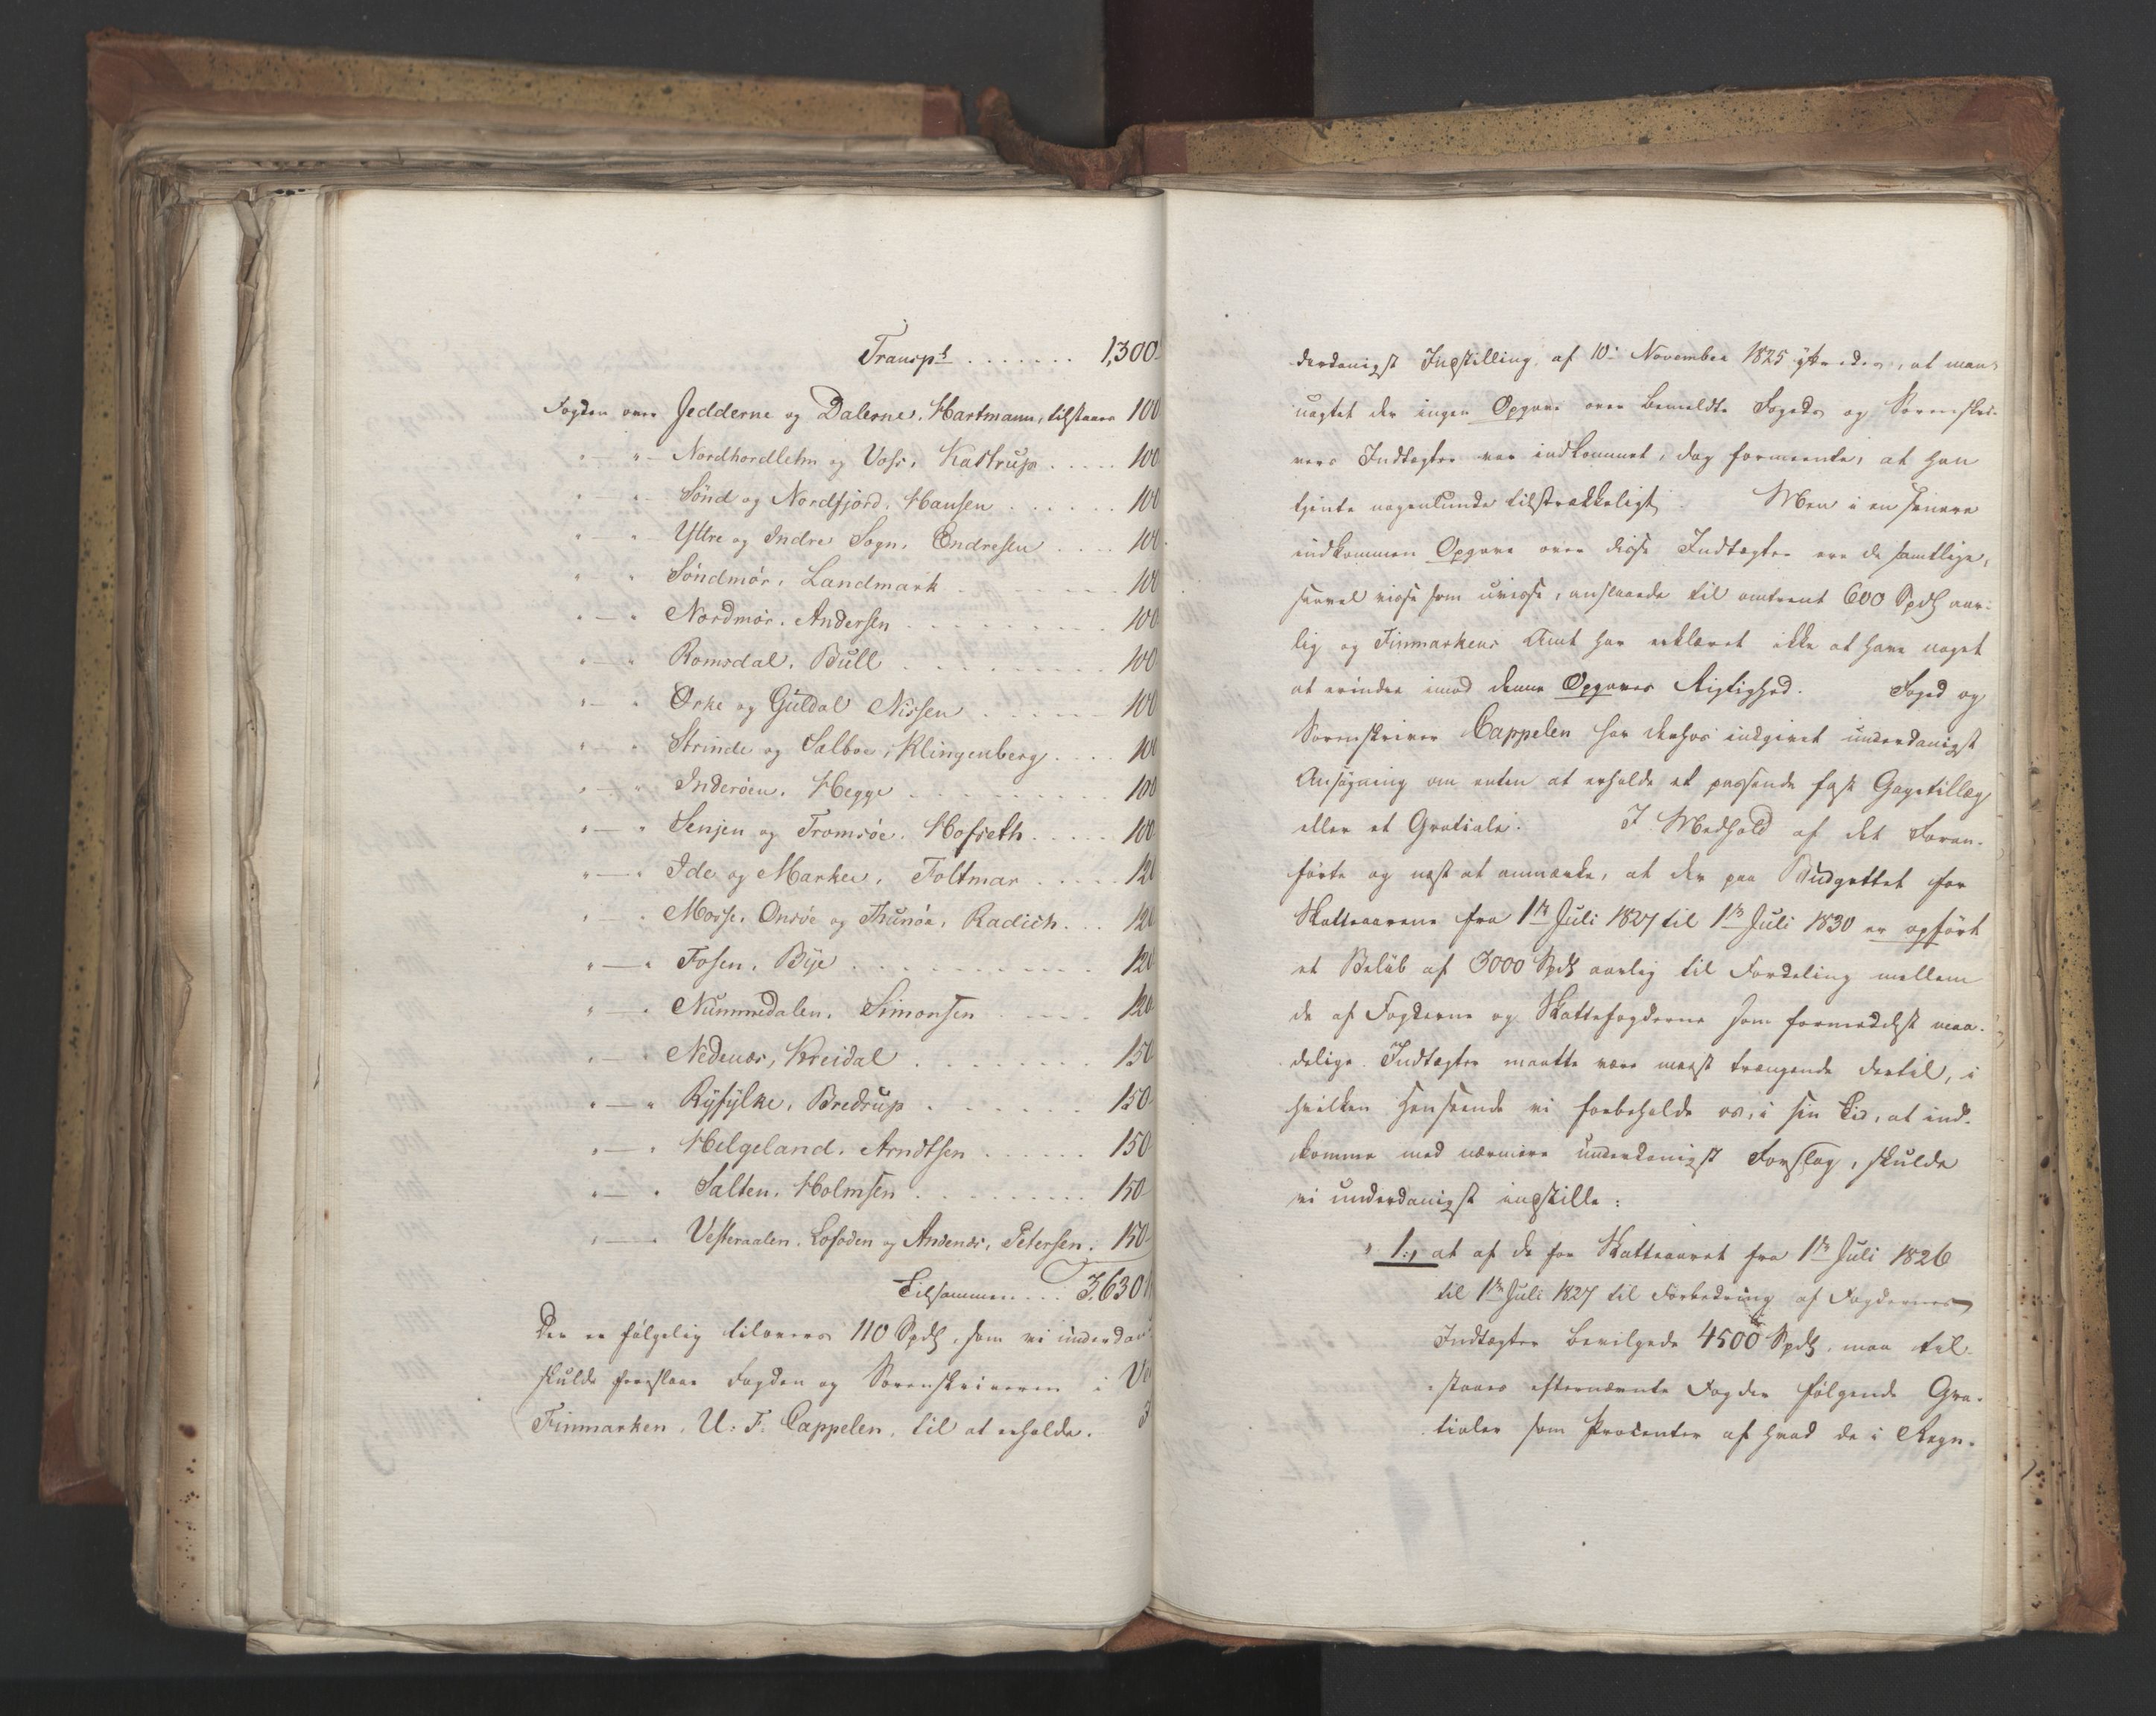 Transpt ....... 1,300
Fogden over Jedderne og Dalerne, Hartmann, tilstaaes 100
" — " — Nordhordlehn og Voss, Kastrup ..... 100
" — " — Sönd og Nordfjord, Hansen ...... 100
" — " Yttre og Indre Sogn, Endresen .... 100
" " Söndmör, Landmark ........ 100
" — " Nordmör, Andersen ......... 100
" — " Romsdal, Bull ......... 100
" — " Orke og Guldal Nissen ...... 100
" " Strinde og Salboe, Klingenberg .... 100
" — " Inderöen, Hegge ......... 100
" — " Senjen og Tromsöe, Hofseth ..... 100
" — " Ide og Marker, Foltmar ..... 120
" — " Mosse, Onsöe og Thunöe, Radich ... 120
" — " Fosen, Bye .......... 120
" — " Nummedalen, Simonsen ..... 120
" — " Nedenæs, Kreidal ........ 150
" — " Ryfylke, Bredrup ....... 150
" — " Helgeland, Arndtsen ...... 150
" — " Salten, Holmsen ......... 150
" — " Vesteraalen, Lofoden og Andenæs, Petersen. 150
Tilsammen .... 3,630
Der er fölgelig tilovers 110 Spd, som vi underdan
skulde foreslaae Fogden og Sorenskriveren i
Finmarken, U. F. Cappelen, til at erholde.
derdanigst Indstilling af 10de November 1825 yttredes, at man,
uagtet der ingen Opgave over bemeldte Fogeds og Sorenskri-
vers Indtægter var indkommet, dog formeente, at han
tjente nogenlunde tilstrækkeligt. Men i en senere
indkommen Opgave over disse Indtægter ere de samtlige,
saavel visse som uvisse, anslaaede til omtrent 600 Spd aar-
lig og Finmarkens Amt har erklæret ikke at have noget
at erindre imod denne Opgaves Rigtighed. Foged og
Sorenskriver Cappelen har derhos indgivet underdanigst
Ansögning om enten at erholde et passende fast Gagetillæg
eller et Gratiale. I Medhold af det Foran-
förte og næst at anmærke, at der paa Budgettet for
Skatteaarene fra 1ste Juli 1827 til 1ste Juli 1830 er opfört
et Belöb af 3000 Spd aarlig til Fordeling mellem
de af Fogderne og Skattefogderne som formedelst maa-
delige Indtægter maatte være meest trængende dertil, i
hvilken Henseende vi forbeholde os, i sin Tid, at ind-
komme med nærmere underdanigst Forslag, skulde
vi underdanigst indstille:
" 1., at af de for Skatteaaret fra 1ste Juli 1826
til 1ste Juli 1827 til Forbedring af Fogdernes
Indtægter bevilgede 4500 Spd, maa til-
staaes efternævnte Fogder fölgende Gra-
tialer som Procenter af hvad de i Regn-